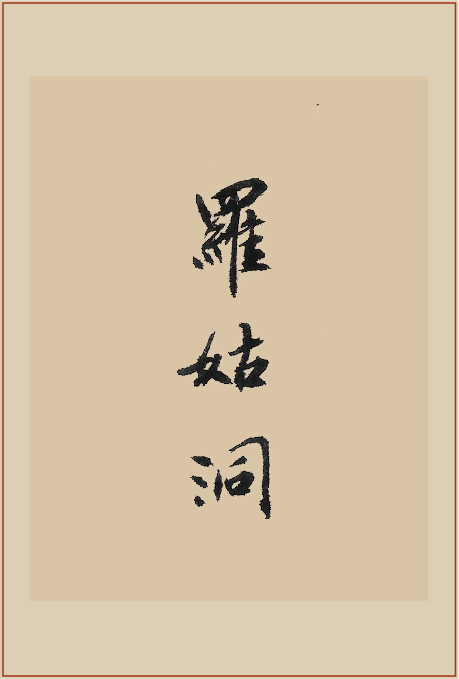 羅姑洞